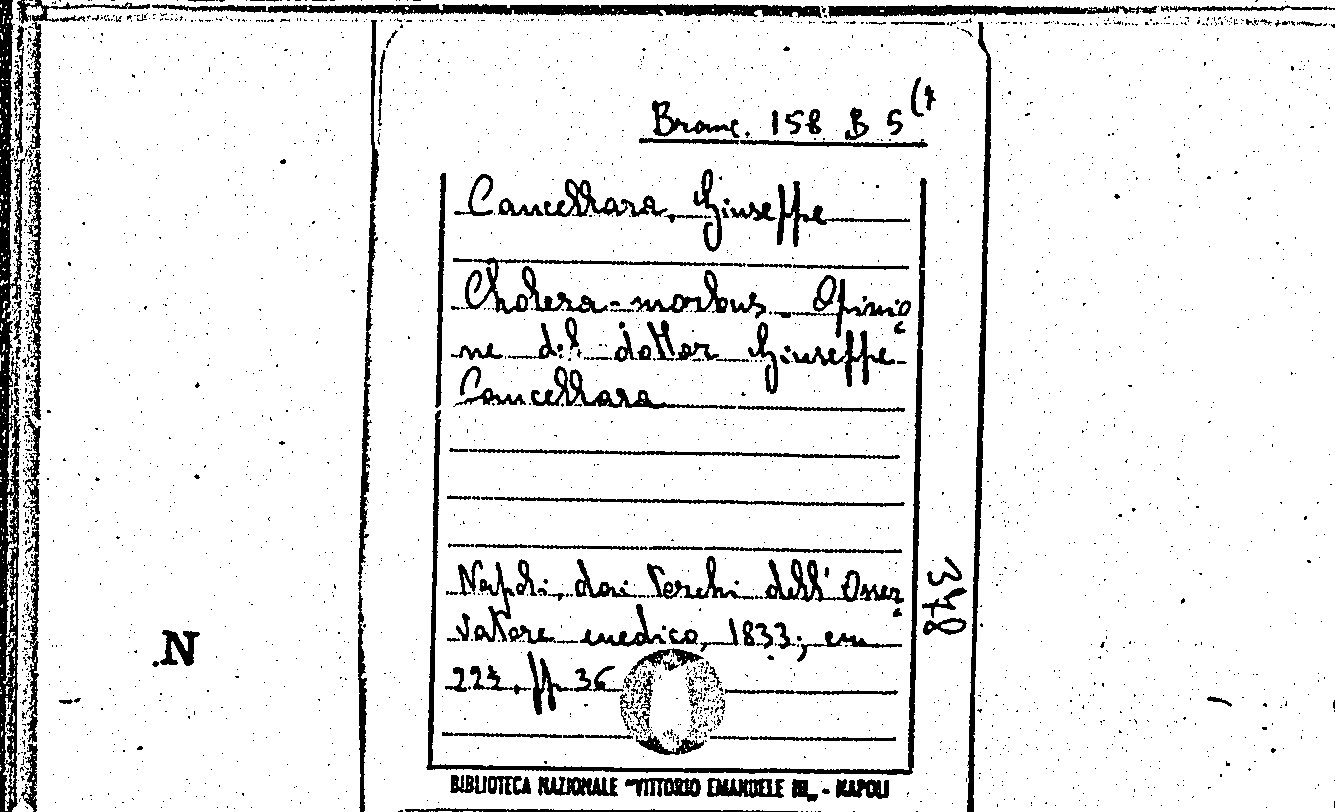 Branc. 158 B 5 (4
Cancellara, Giuseppe
Cholera-morbus. Opinio
ne del dottor Giuseppe
Cancellara
Napoli, dai Torchi dell'Osser
vatore medico, 1833; cm
223, pp. 36
348
.N
BIBLIOTECA NAZIONALE "VITTORIO EMANUELE III„ - NAPOLI